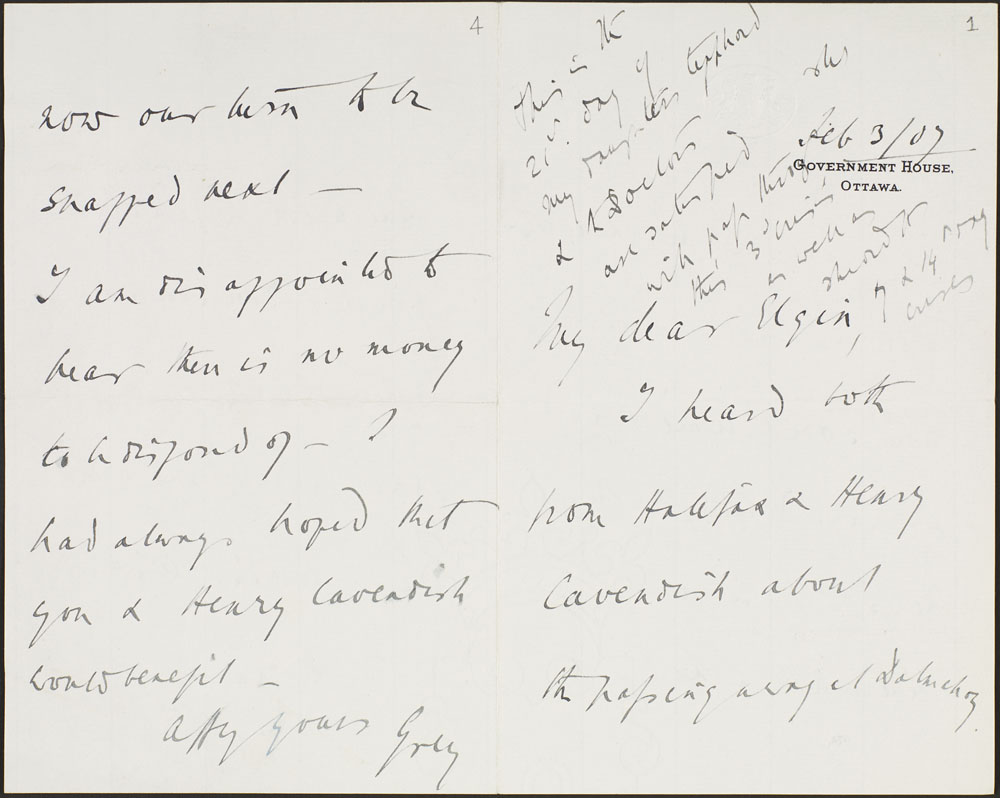 4
now our turn to be
snapped next —
I am disappointed to
hear there is no money
to be disposed of — I
had always hoped that
you & Henry Cavendish
would benefit —
Affy yours Grey
1
This is the
21st day of
my daughters typhoid
& Doctors
are satisfied she
will pass through
this 3rd crisis
as well as
she did for
7 & 14 day
crises
Feb 3/07
GOVERNMENT HOUSE,
OTTAWA.
My dear Elgin,
I heard both
from Halifax & Henry
Cavendish about
the passing away at Dalmahoy